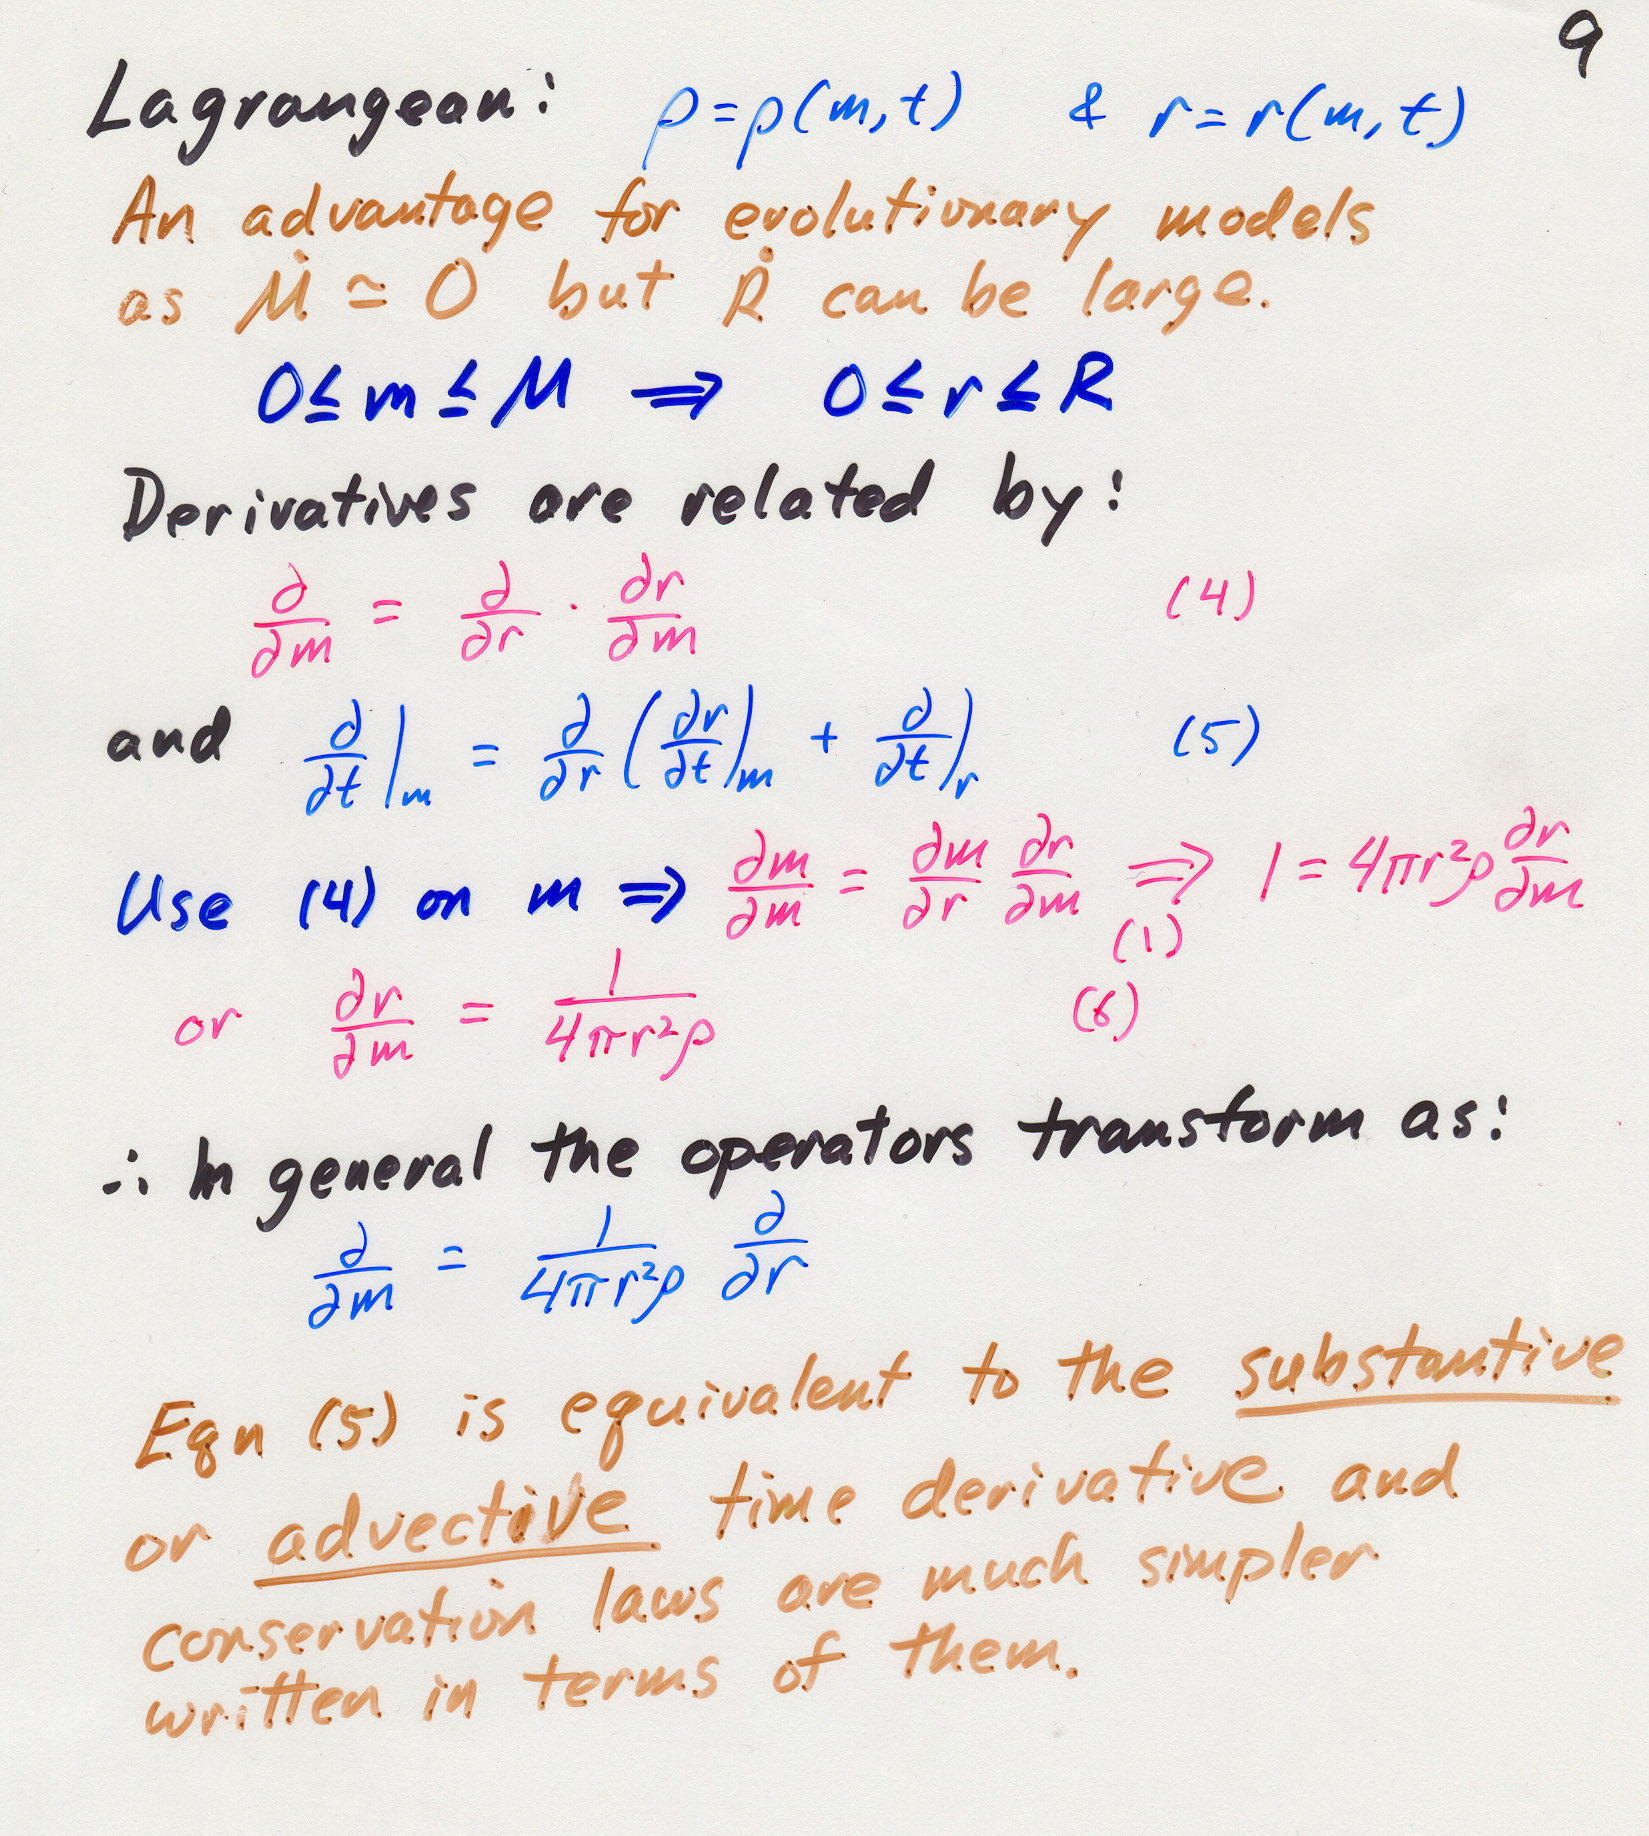 9
Lagrangean: ρ = ρ(m,t) & r = r(m,t)
An advantage for evolutionary models
as Ṁ ≃ 0 but Ṙ can be large.
0 ≤ m ≤ M ⇒ 0 ≤ r ≤ R
Derivatives are related by:
∂/∂m = ∂/∂r · ∂r/∂m (4)
and ∂/∂t|_m = ∂/∂r (∂r/∂t)_m + ∂/∂t)_r (5)
Use (4) on m ⇒ ∂m/∂m = ∂m/∂r ∂r/∂m ⇒ 1 = 4πr²ρ ∂r/∂m
(1)
or ∂r/∂m = 1/4πr²ρ (6)
∴ In general the operators transform as:
∂/∂m = 1/4πr²ρ ∂/∂r
Eqn (5) is equivalent to the substantive
or advective time derivative and
conservation laws are much simpler
written in terms of them.